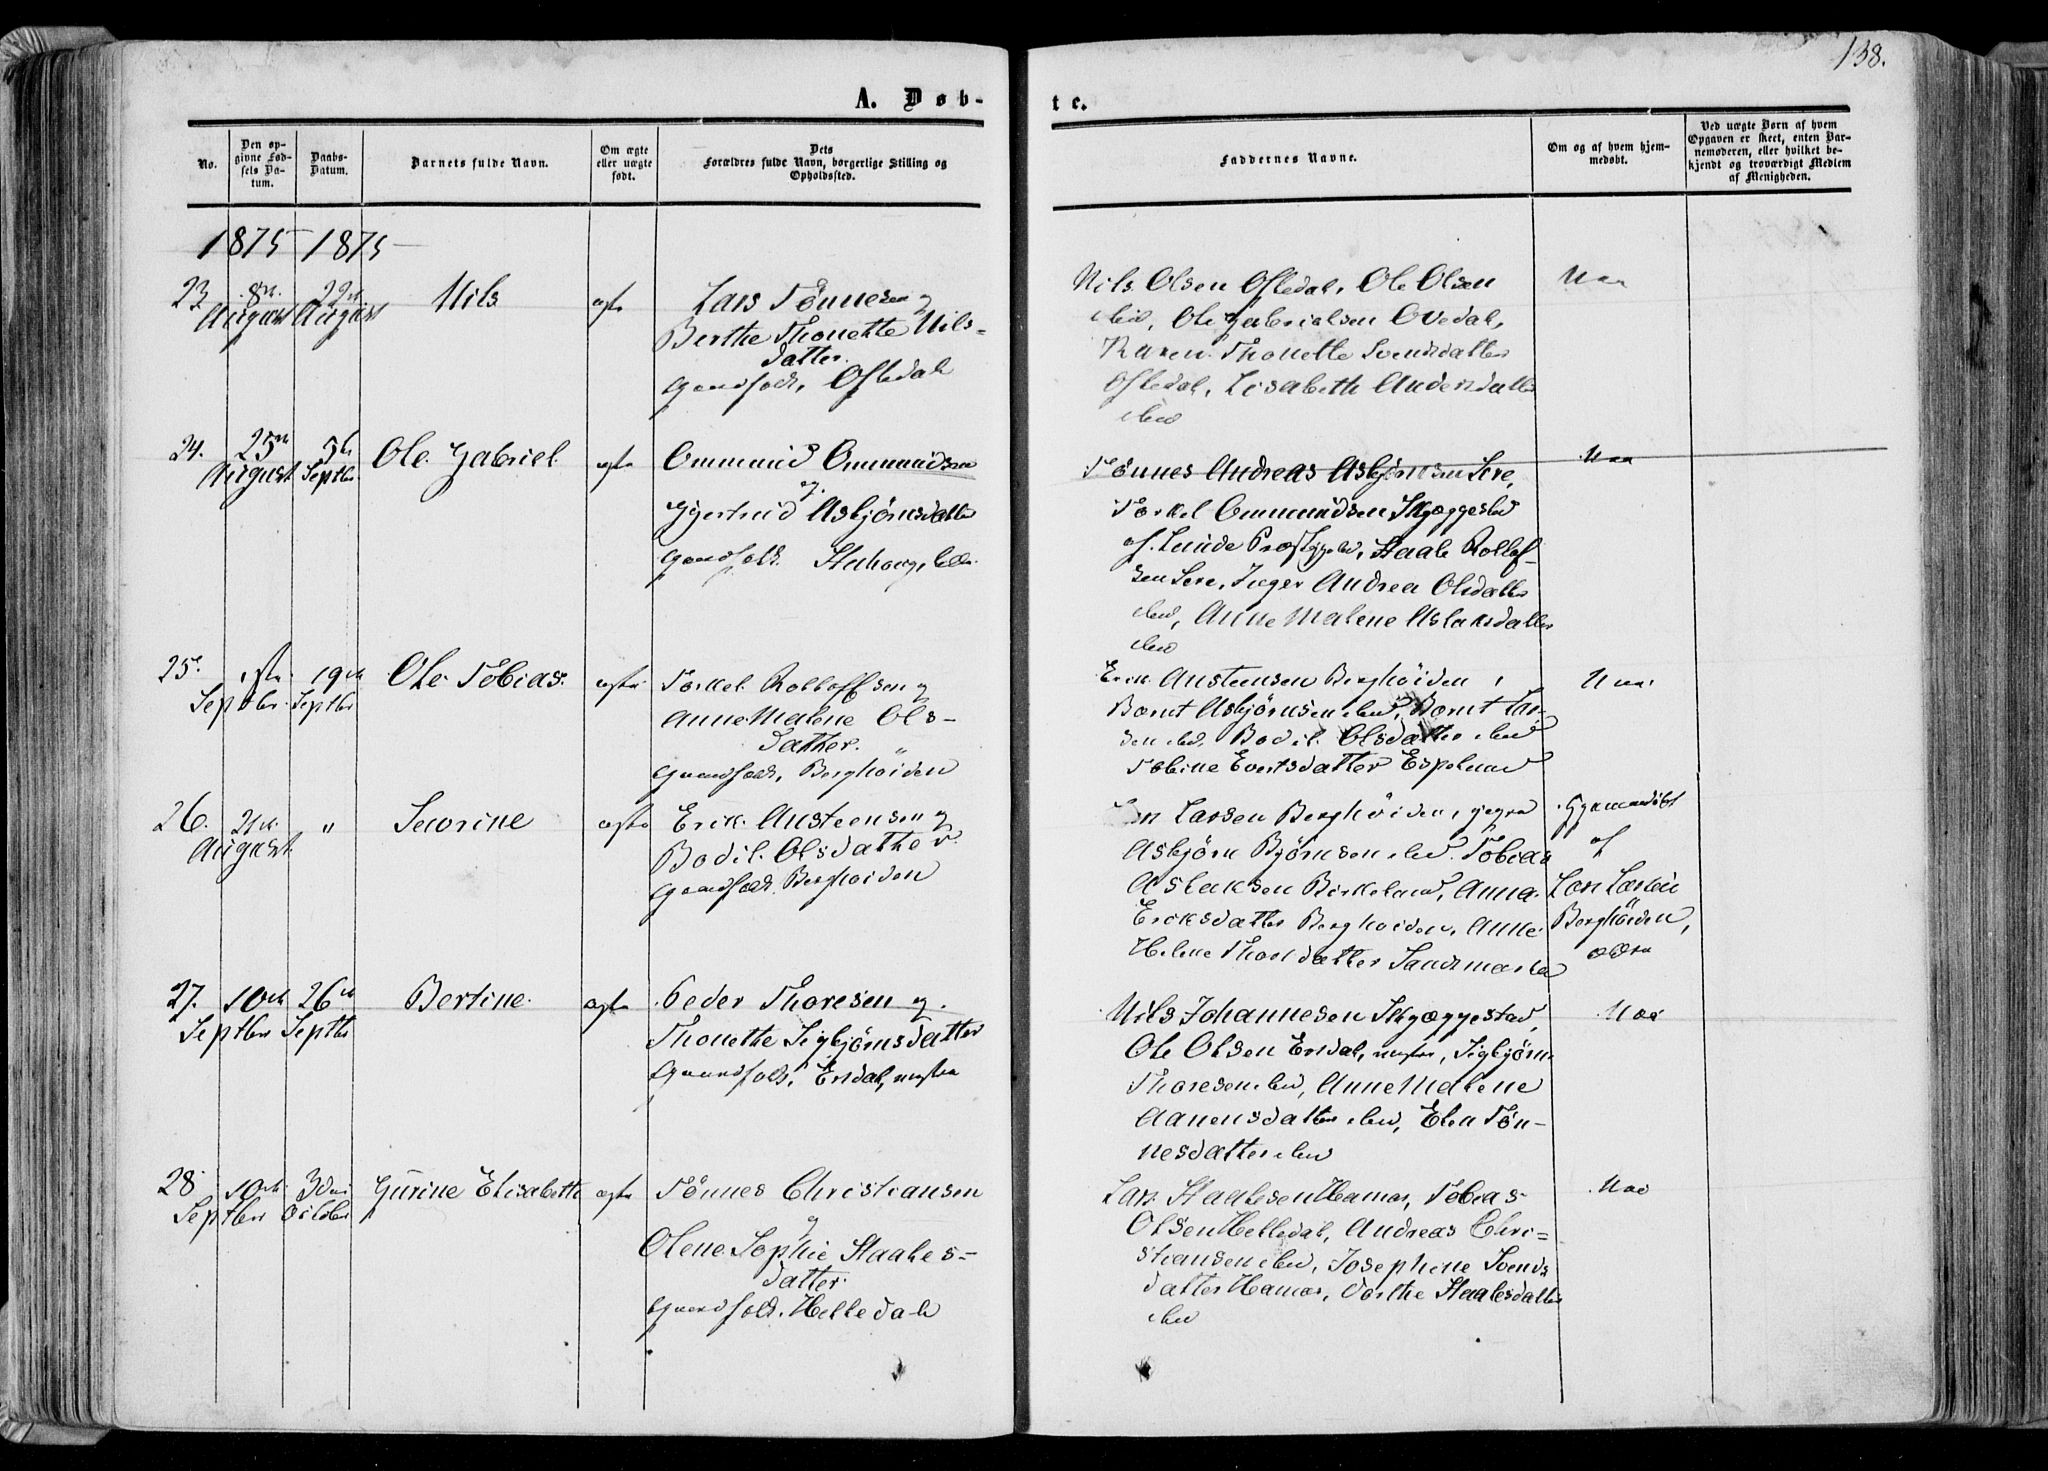 138.
A. Døb-
te.
No.
Den op-
givne Fød-
sels Da-
tum.
Daabs-
Datum.
Barnets fulde Navn.
Om ægte
eller uægte
født.
Dets
Forældres fulde Navn, borgerlige Stilling og
Opholdssted.
Faddernes Navne.
Om og af hvem hjem-
medøbt.
Ved uægte Børn af hvem
Opgaven er skeet, enten Bar-
nemoderen, eller hvilket be-
kjendt og troværdigt Medlem
af Menigheden.
1875 1875
23
8de
August
22de
August
Nils
ægte
Lars Tønnesen og
Berthe Thonette Nils-
datter.
Gaardfolk, Ofledal
Nils Olsen Ofledal, Ole Olsen
ibid, Ole Gabrielsen Ovedal,
Karen Thonette Svendsdatter
Ofledal, Lisabeth Andersdatter
ibid
Nei
24.
25de
August
5te
Septbr
Ole Gabriel
ægte
Ommund Ommundsen
og
Gjertrud Asbjørnsdatter
Gaardfolk
Tønnes Andreas Asbjørnsen Sere,
Torkel Ommundsen Skjæggestad
af Lunde Præstegjeld, Staale Rollof-
sen Sere, Inger Andrea Olsdatter
ibid, Anne Malene Aslaksdatter
ibid
Nei
25.
1ste
Septbr
19de
Septbr
Ole Tobias.
ægte
Torkel Rolloffsen og
Anne Malene Ols-
datter.
Gaardfolk, Berghøiden
Erik Austeensen Berghøiden,
Bornt Asbjørnsen ibid, Bornt Lar-
sen ibid, Bodil Olsdatter ibid
Tobine Evertsdatter Espeland
Nei
26.
21de
August
"
Severine
ægte
Erik Austeensen og
Bodil Olsdatter.
Gaardfolk Berghøiden
Larsen Berghøiden, yngre
Asbjørn Bjørnsen ibid. Tobias
Aslaksen Birkeland, Anna
Eriksdatter Berghøiden, Anne
Helene Thorsdatter Sandsmark
Hjemmedøbt
af
Lars Larsen
Berghøiden,
ældre
27.
10de
Septbr
26de
Septbr
Bertine.
ægte
Peder Thoresen og
Thonette Sigbjørnsdatter
Gaardfolk, Ersdal, nestre
Nils Johannesen Skjæggestad,
Ole Olsen Ersdal, nestre, Sigbjørn
Thoresen ibid, Anne Malene
Aanensdatter ibid, Elen Tøn-
nesdatter ibid
Nei
28
10de
Septbr
3die
October
Gurine Elisabeth
ægte
Tønnes Christiansen
og
Olene Sophie Staales-
datter.
Gaardfolk. Helledal
Lars Staalesen Hamar, Tobias
Olsen Helledal, Andreas Chri-
stiansen ibid, Josephine Svends
datter Hamar, Dorthe Staalesdatter
ibid
Nei